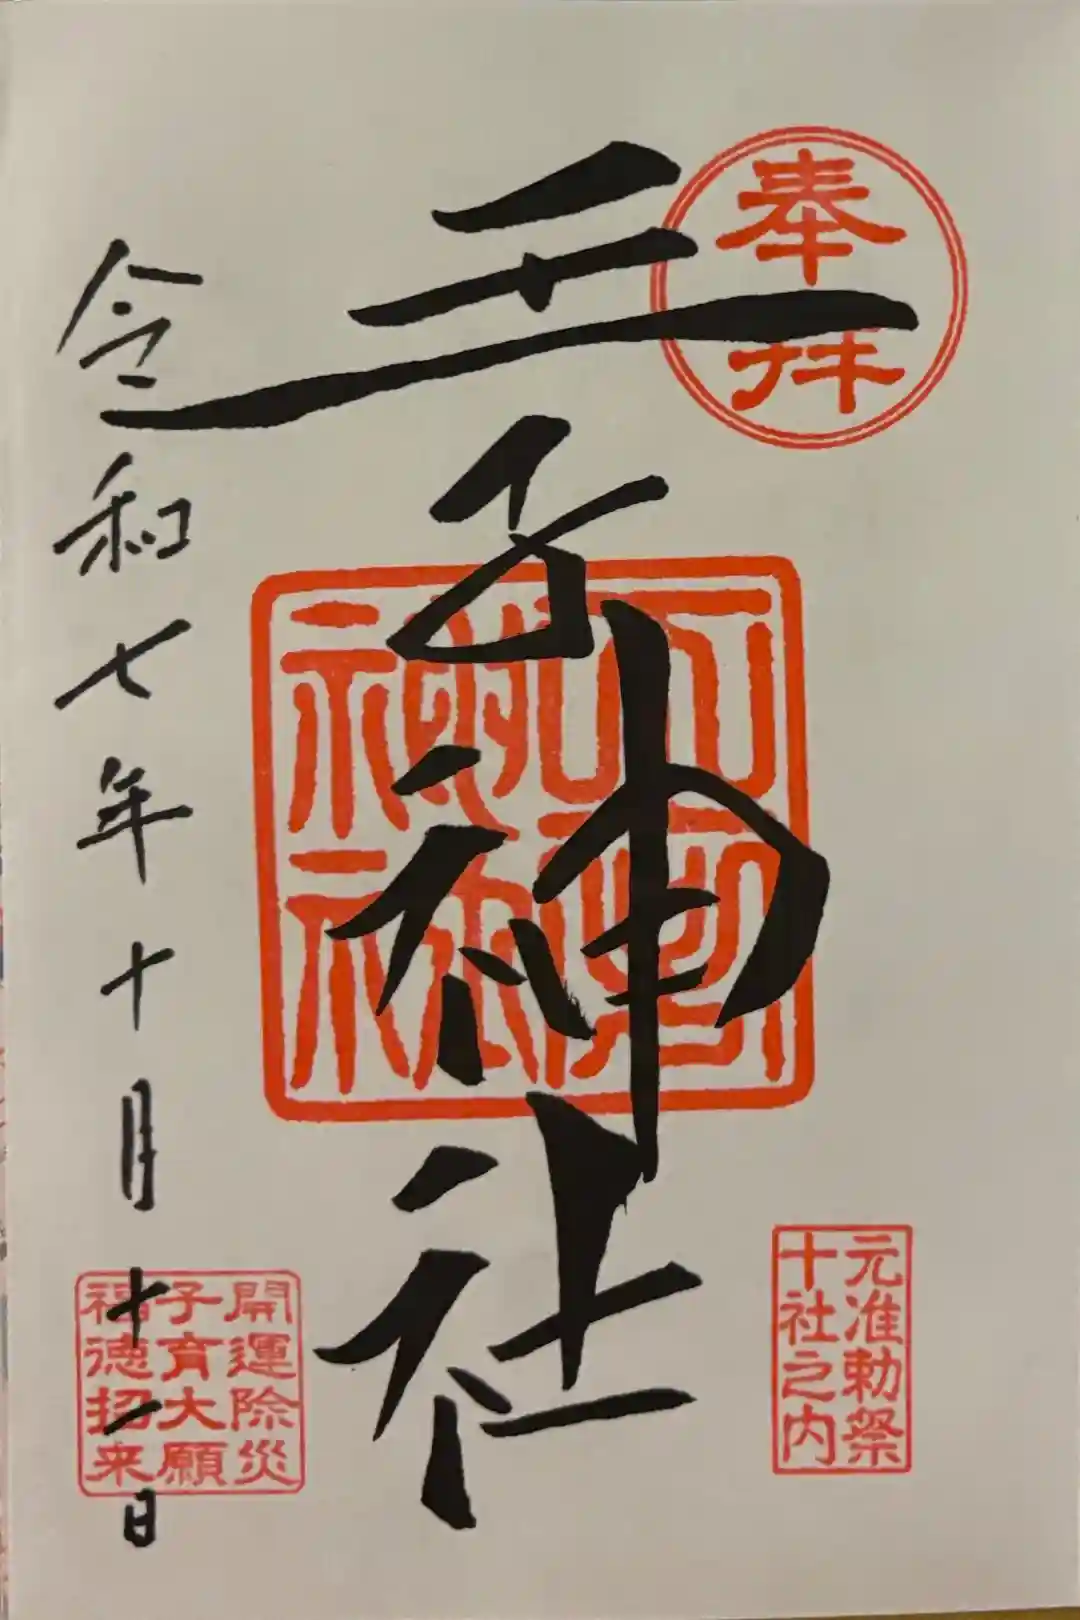 奉拝
元准勅祭
十社之内
王子神社
開運除災
子育大願
福徳招来
令和七年十月十一日